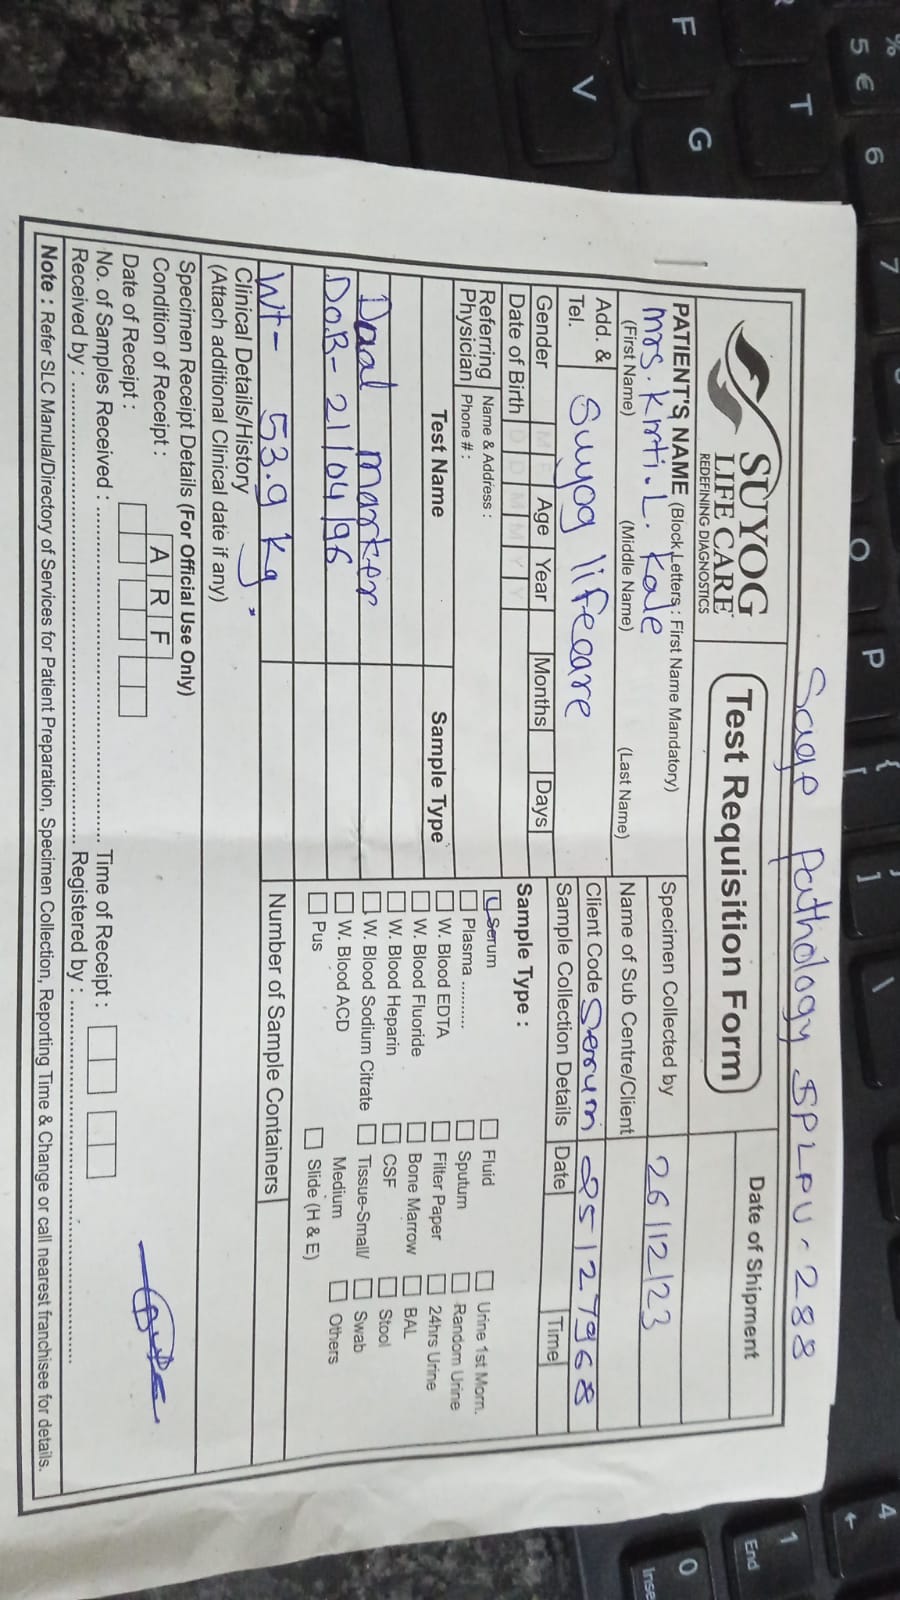 Sage Pathology SPLPU - 288
SUYOG
LIFE CARE
REDEFINING DIAGNOSTICS
Test Requisition Form
Date of Shipment
PATIENT'S NAME (Block Letters : First Name Mandatory)
Mrs. Kirti. L. Kale
(First Name) (Middle Name) (Last Name)
Specimen Collected by 26/12/23
Name of Sub Centre/Client
Add. &
Tel.
Suyog lifecare
Client Code Serrum 05127968
Gender M F Age Year Months Days
Sample Collection Details Date Time
Date of Birth D D M M Y Y
Sample Type :
Referring
Physician
Name & Address :
Phone # :
Serum Fluid Urine 1st Morn.
Plasma .......... Sputum Random Urine
Test Name Sample Type
W. Blood EDTA Filter Paper 24hrs Urine
W. Blood Fluoride Bone Marrow BAL
W. Blood Heparin CSF Stool
Daal marker
W. Blood Sodium Citrate Tissue-Small/ Swab
W. Blood ACD Medium Others
D.O.B - 21/04/96
Pus Slide (H & E)
Wt - 53.9 kg.
Number of Sample Containers
Clinical Details/History
(Attach additional Clinical date if any)
Specimen Receipt Details (For Official Use Only)
Condition of Receipt : A R F
Date of Receipt :
No. of Samples Received : .......... Time of Receipt :
Received by : .......... Registered by : ..........
Note : Refer SLC Manula/Directory of Services for Patient Preparation, Specimen Collection, Reporting Time & Change or call nearest franchisee for details.
T
5 €
%
6
7
F
G
V
O
P
{
[
]
\
4
1
End
0
Inse